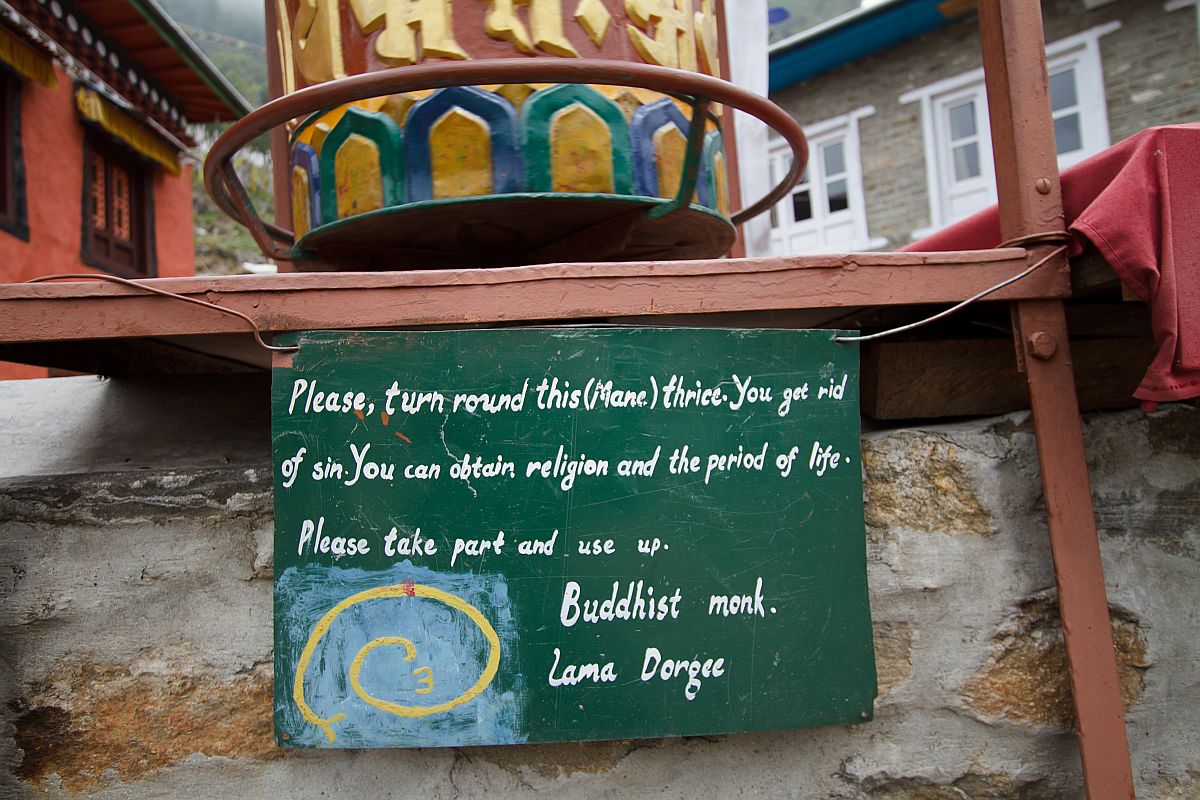 Please, turn round this (Mane) thrice. You get rid
of sin. You can obtain religion and the period of life.
Please take part and use up.
Buddhist monk.
Lama Dorgee
3